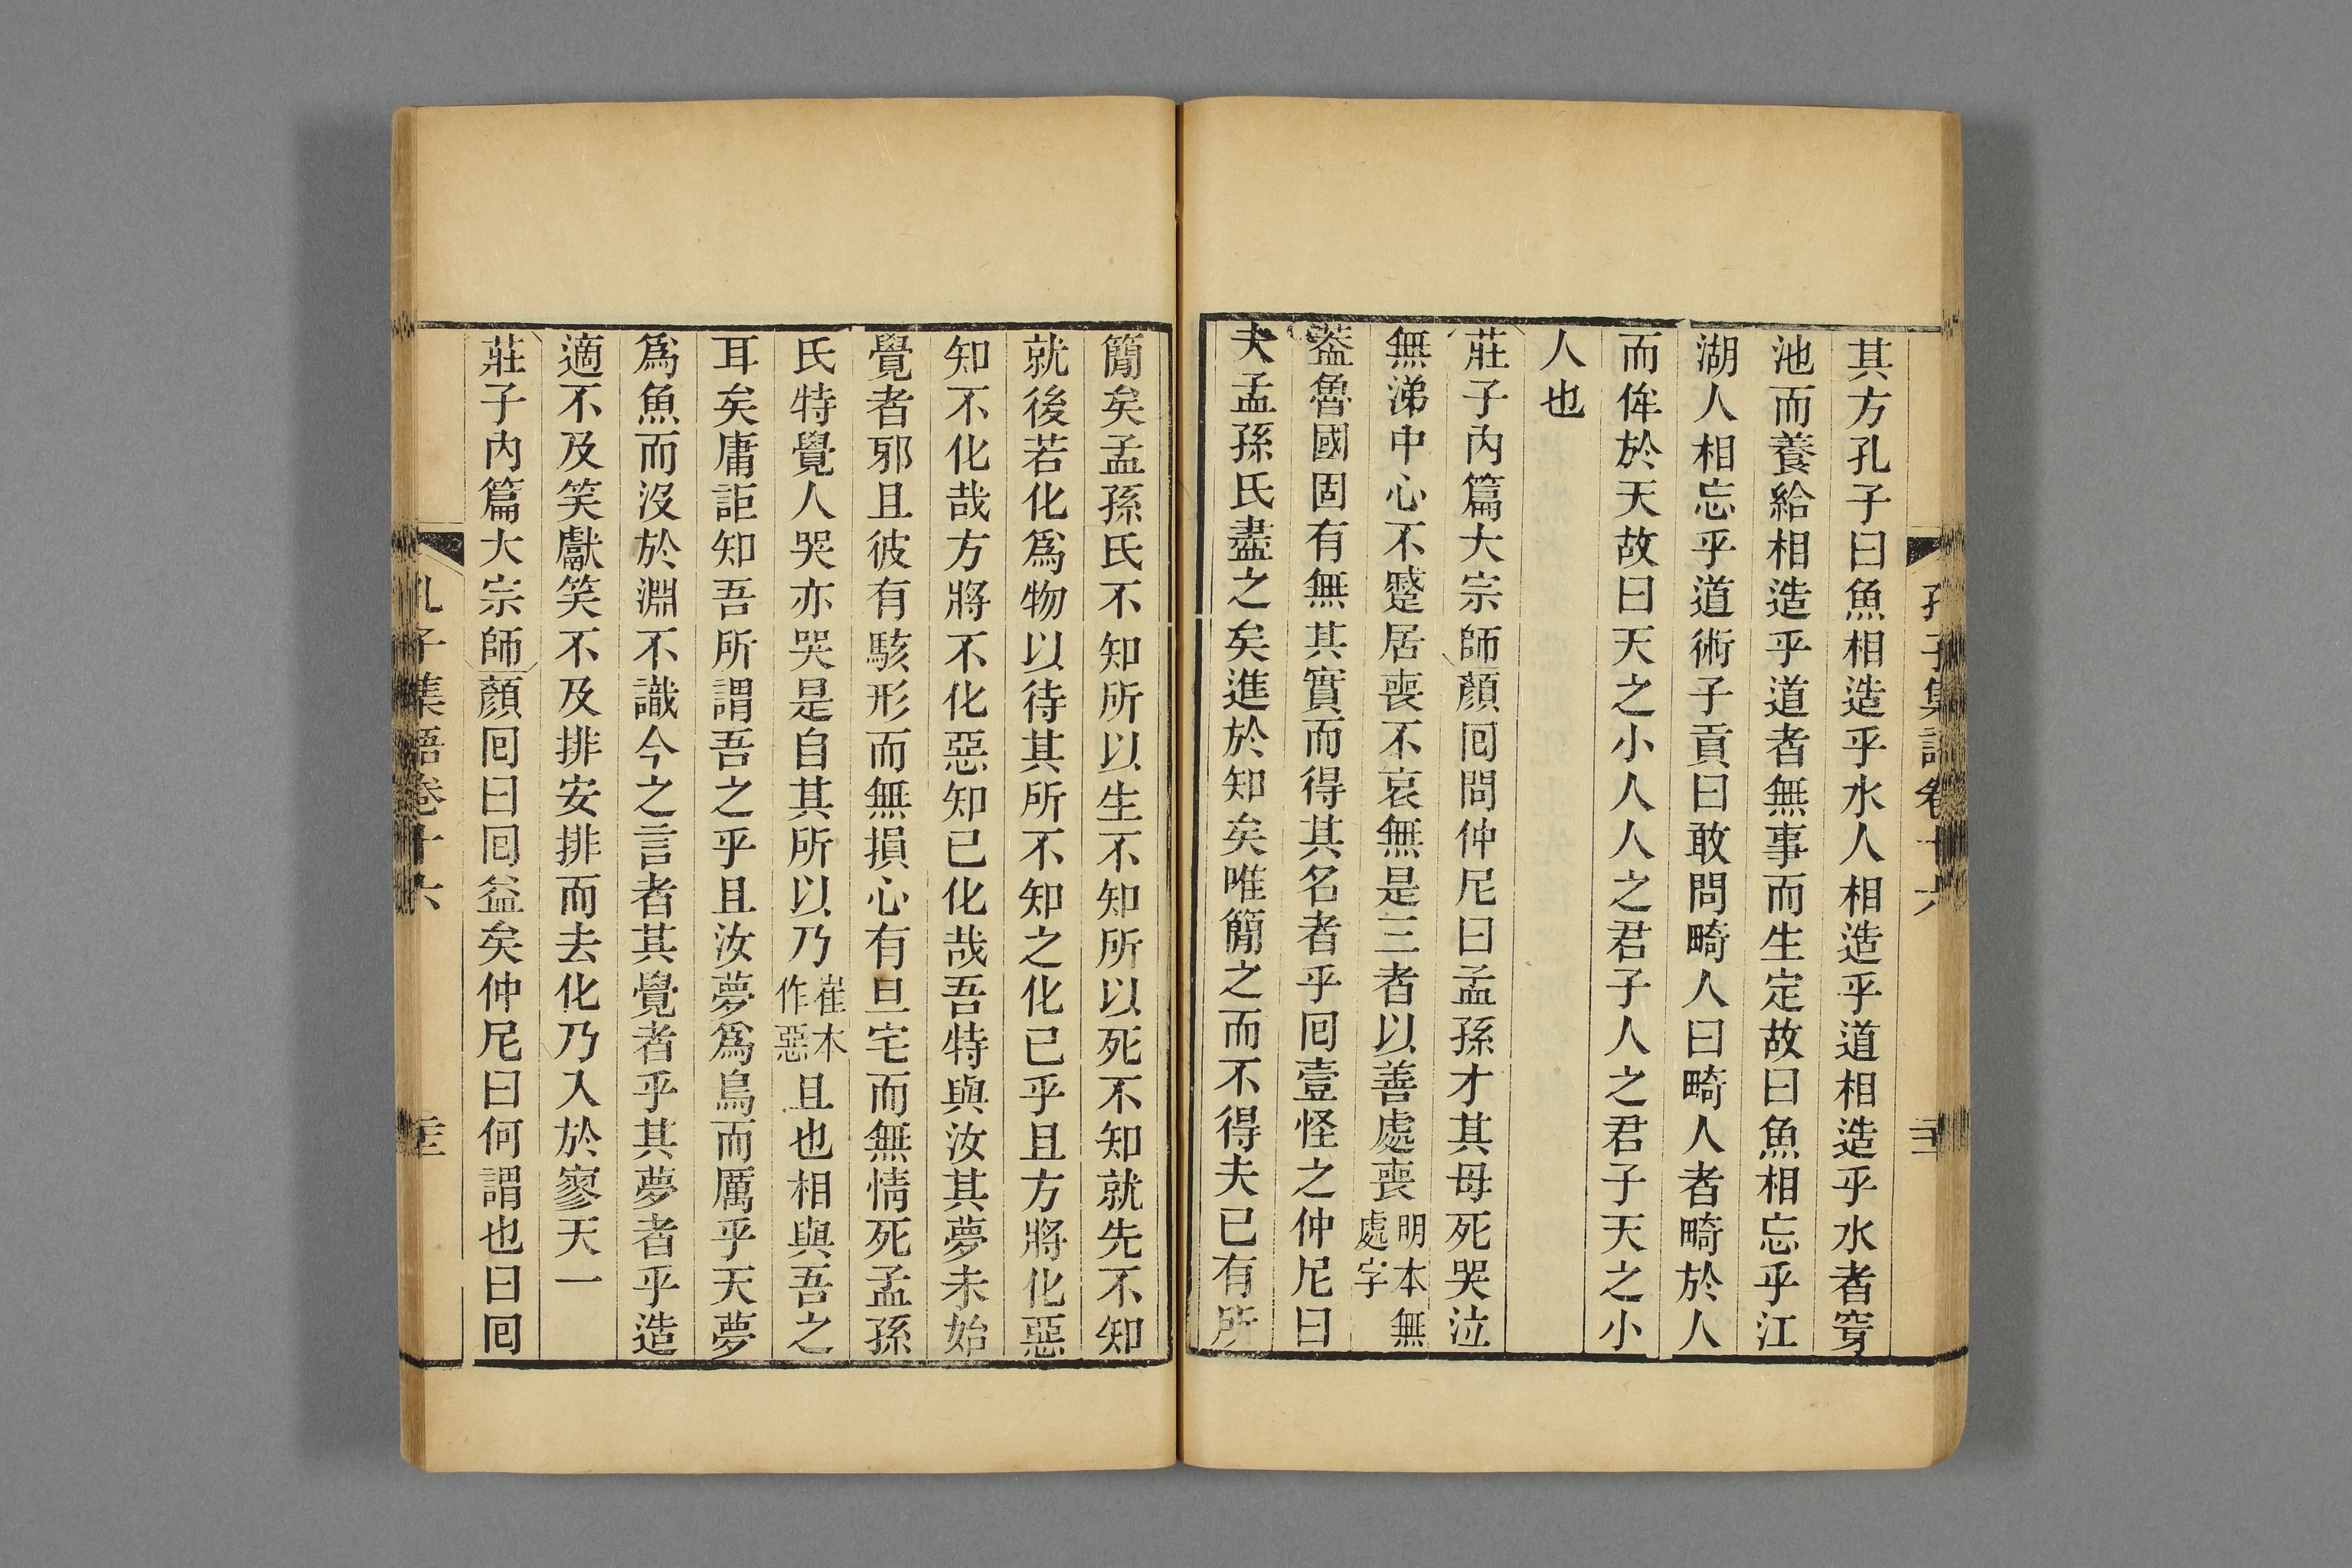 其方孔子曰魚相造乎水人相造乎道相造乎水者穿
池而養給相造乎道者無事而生定故曰魚相忘乎江
湖人相忘乎道術子貢曰敢問畸人曰畸人者畸於人
而侔於天故曰天之小人人之君子人之君子天之小
人也
莊子內篇大宗師顏回問仲尼曰孟孫才其母死哭泣
無涕中心不蹙居喪不哀無是三者以善處喪明本無處字
蓋魯國固有無其實而得其名者乎回壹怪之仲尼曰
夫孟孫氏盡之矣進於知矣唯簡之而不得夫已有所
簡矣孟孫氏不知所以生不知所以死不知就先不知
就後若化爲物以待其所不知之化已乎且方將化惡
知不化哉方將不化惡知已化哉吾特與汝其夢未始
覺者邪且彼有駭形而無損心有旦宅而無情死孟孫
氏特覺人哭亦哭是自其所以乃崔本作惡且也相與吾之
耳矣庸詎知吾所謂吾之乎且汝夢爲鳥而厲乎天夢
爲魚而沒於淵不識今之言者其覺者乎其夢者乎造
適不及笑獻笑不及排安排而去化乃入於寥天一
莊子內篇大宗師顏回曰回益矣仲尼曰何謂也曰回
孔子集語卷十六